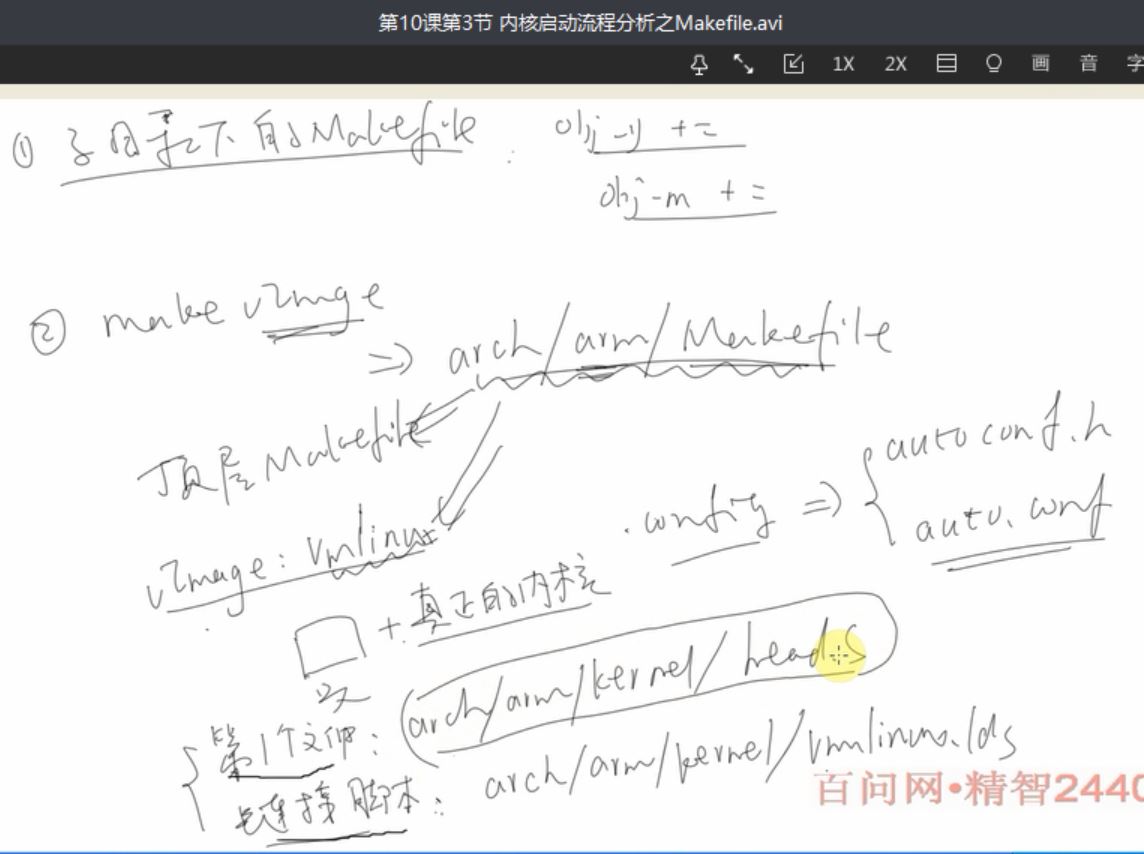 第10课第3节 内核启动流程分析之Makefile.avi
1X 2X 画 音 字
① 子目录下的Makefile : obj-y +=
obj-m +=
② make uImage
=> arch/arm/Makefile
顶层Makefile
.config => { autoconf.h
auto.conf
uImage: vmlinux
头 + 真正的内核
第1个文件: arch/arm/kernel/head.S
连接脚本: arch/arm/kernel/vmlinux.lds
百问网•精智2440